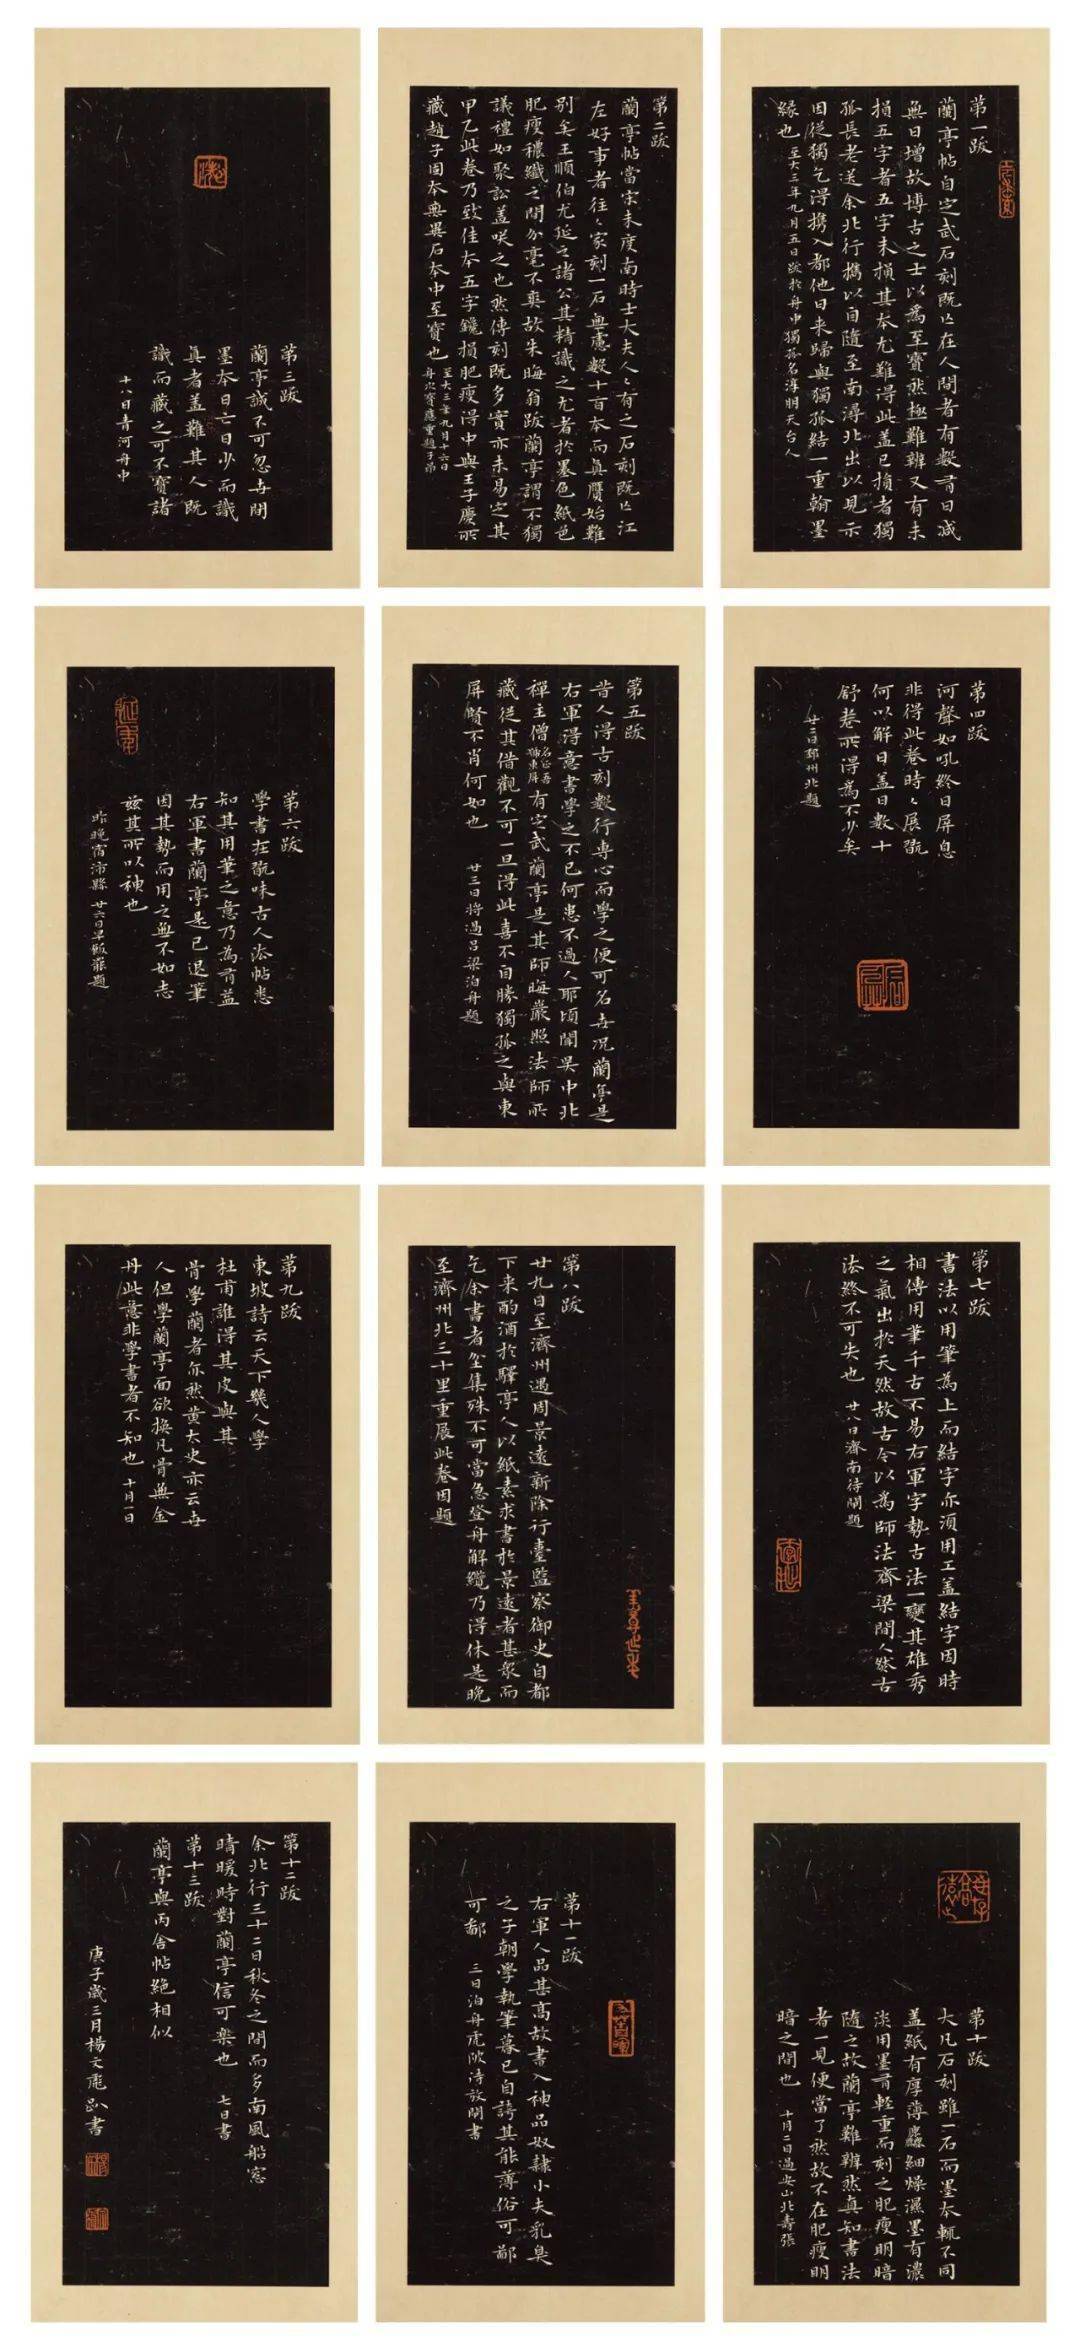 第一跋
蘭亭帖自定武石刻既亡在人間者有數有日減
無日增故博古之士以爲至寶然極難辨又有未
損五字者五字未損其本尤難得此蓋已損者獨
孤長老送余北行攜以自隨至南潯北出以見示
因從獨乞得携入都他日来歸與獨孤結一重翰墨
緣也 至大三年九月五日跋於舟中獨孤名淳朋天台人
第二跋
蘭亭帖當宋未度南時士大夫人々有之石刻既亡江
左好事者往々家刻一石無慮數十百本而真贗始難
別矣王順伯尤延之諸公其精識之尤者於墨色紙色
肥瘦穠纖之間分毫不爽故朱晦翁跋蘭亭謂不獨
議禮如聚訟蓋咲之也然傳刻既多實亦未易定其
甲乙此卷乃致佳本五字鑱損肥瘦得中與王子慶所
藏趙子固本無異石本中至寶也 至大三年九月十六日
舟次寶應重題子昂
第三跋
蘭亭誠不可忽世間
墨本日亡日少而識
真者蓋難其人既
識而藏之可不寶諸
十八日清河舟中
第四跋
河聲如吼終日屏息
非得此卷時々展翫
何以解日蓋日數十
舒卷所得爲不少矣
廿二日邳州北題
第五跋
昔人得古刻數行專心而學之便可名世況蘭亭是
右軍得意書學之不已何患不過人耶頃聞吳中北
禪主僧名正吾號東屏有定武蘭亭是其師晦巖照法師所
藏從其借觀不可一旦得此喜不自勝獨孤之與東
屏賢不肖何如也 廿三日將過呂梁泊舟題
第六跋
學書在翫味古人法帖悉
知其用筆之意乃為有益
右軍書蘭亭是已退筆
因其勢而用之無不如志
茲其所以神也
昨晚宿沛縣廿六日早飯罷題
第七跋
書法以用筆為上而結字亦須用工蓋結字因時
相傳用筆千古不易右軍字勢古法一變其雄秀
之氣出於天然故古今以爲師法齊梁間人然古
法終不可失也 廿八日濟南待閘題
第八跋
廿九日至濟州遇周景遠新除行臺監察御史自都
下来酌酒於驛亭人以紙素求書於景遠者甚衆而
乞余書者坌集殊不可當急登舟解纜乃得休是晚
至濟州北三十里重展此卷因題
第九跋
東坡詩云天下幾人學
杜甫誰得其皮與其
骨學蘭者亦然黃大史亦云世
人但學蘭亭面欲換凡骨無金
丹此意非學書者不知也 十月一日
第十跋
大凡石刻雖一石而墨本輒不同
蓋紙有厚薄麤細燥濕墨有濃
淡用墨有輕重而刻之肥瘦明暗
隨之故蘭亭難辨然真知書法
者一見便當了然故不在肥瘦明
暗之間也 十月二日過安山北壽張
第十一跋
右軍人品甚高故書入神品奴隸小夫乳臭
之子朝學執筆暮已自誇其能薄俗可鄙
可鄙 三日泊舟虎陂待放閘書
第十二跋
余北行三十二日秋冬之間而多南風船窓
晴暖時對蘭亭信可樂也 七日書
第十三跋
蘭亭與丙舍帖絕相似
庚子歲三月楊文 書